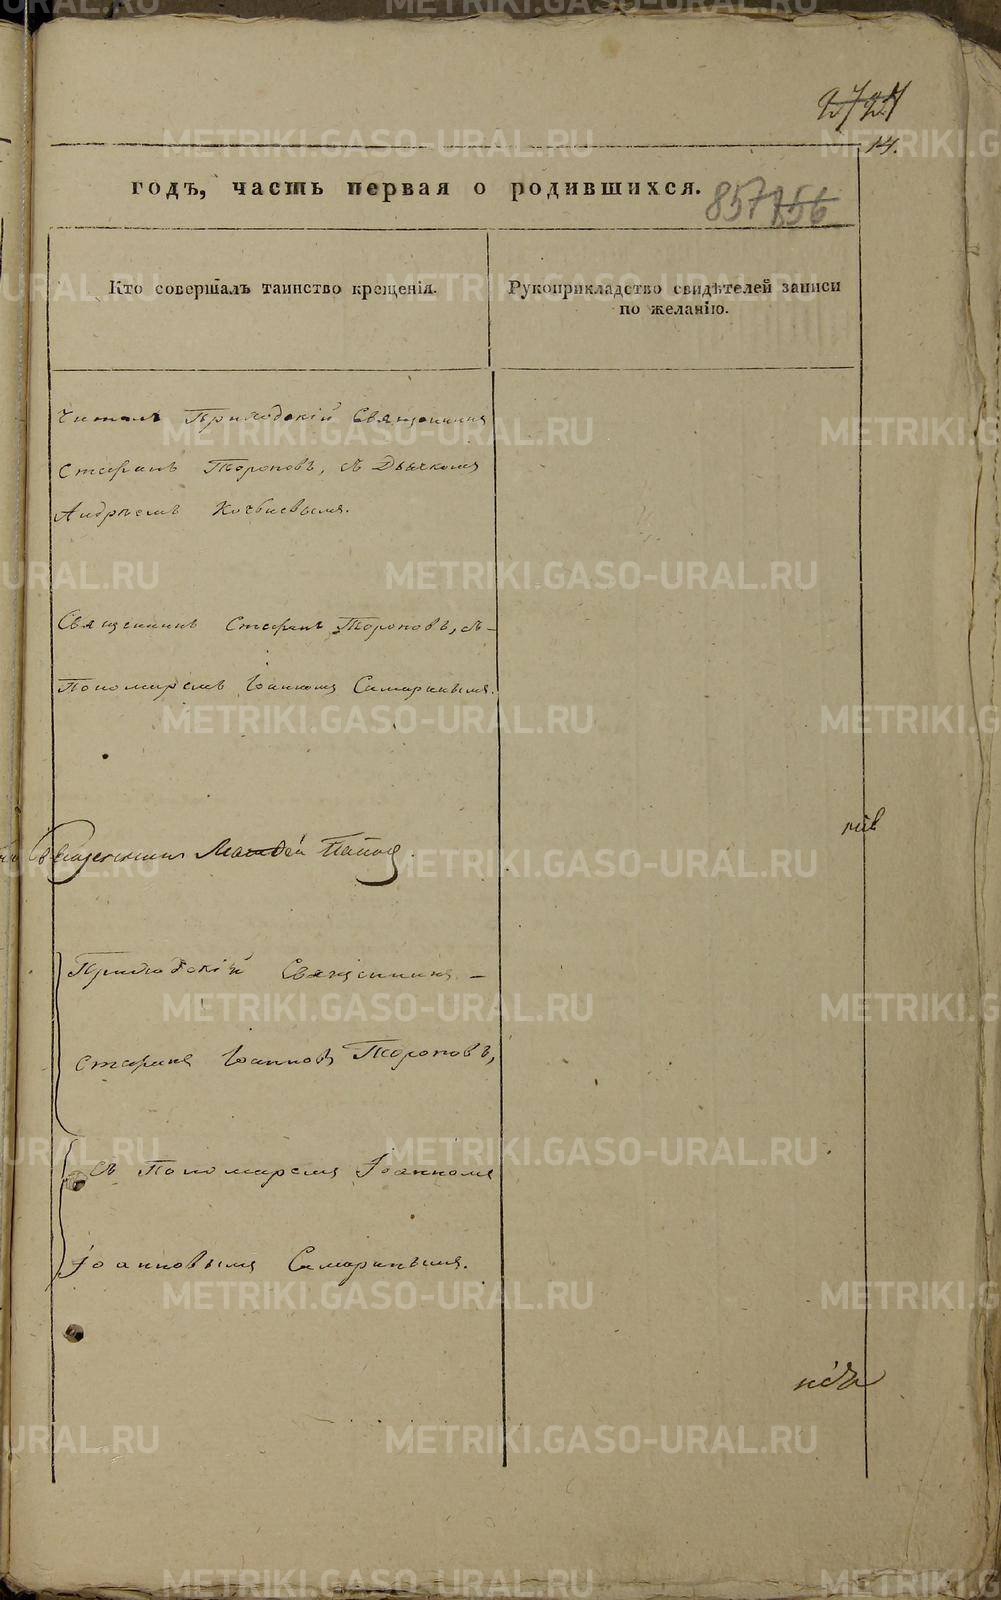 14.
годъ, часть первая о родившихся.
857 856
Кто совершалъ таинство крещенія.
Рукоприкладство свидѣтелей записи
по желанію.
Читалъ Приходскій Священникъ
Стефанъ Тороповъ, съ Дьячкомъ
Андреемъ
Священникъ Стефанъ Тороповъ, съ
Пономаремъ Іоанномъ Самаринымъ.
Священникъ Матвей Поповъ.
Приходскій Священникъ
Стефанъ Іоанновъ Тороповъ,
съ Пономаремъ Іоанномъ
Іоанновымъ Самаринымъ.
METRIKI.GASO-URAL.RU